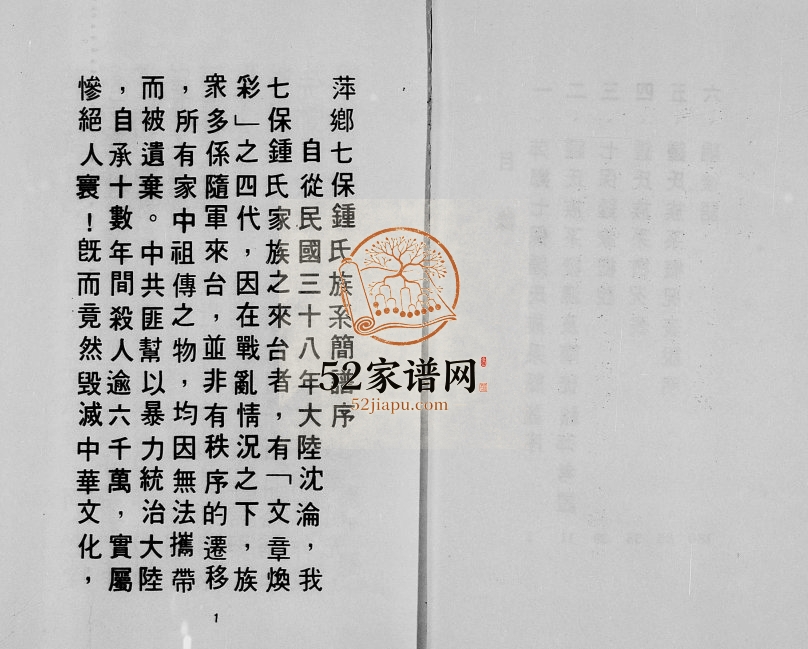 萍鄉七保鍾氏族系簡譜序
自從民國三十八年大陸沈淪，我
七保鍾氏家族之來台者，有「文章煥
彩」之四代，因在戰亂情況之下，族
衆多係隨軍來台，並非有秩序的遷移
，所有家中祖傳之物，均因無法攜帶
而被遺棄。中共匪幫以暴力統治大陸
，自承十數年間殺人逾六千萬，實屬
慘絕人寰！旣而竟然毀滅中華文化，
1
52家谱网
52jiapu.com